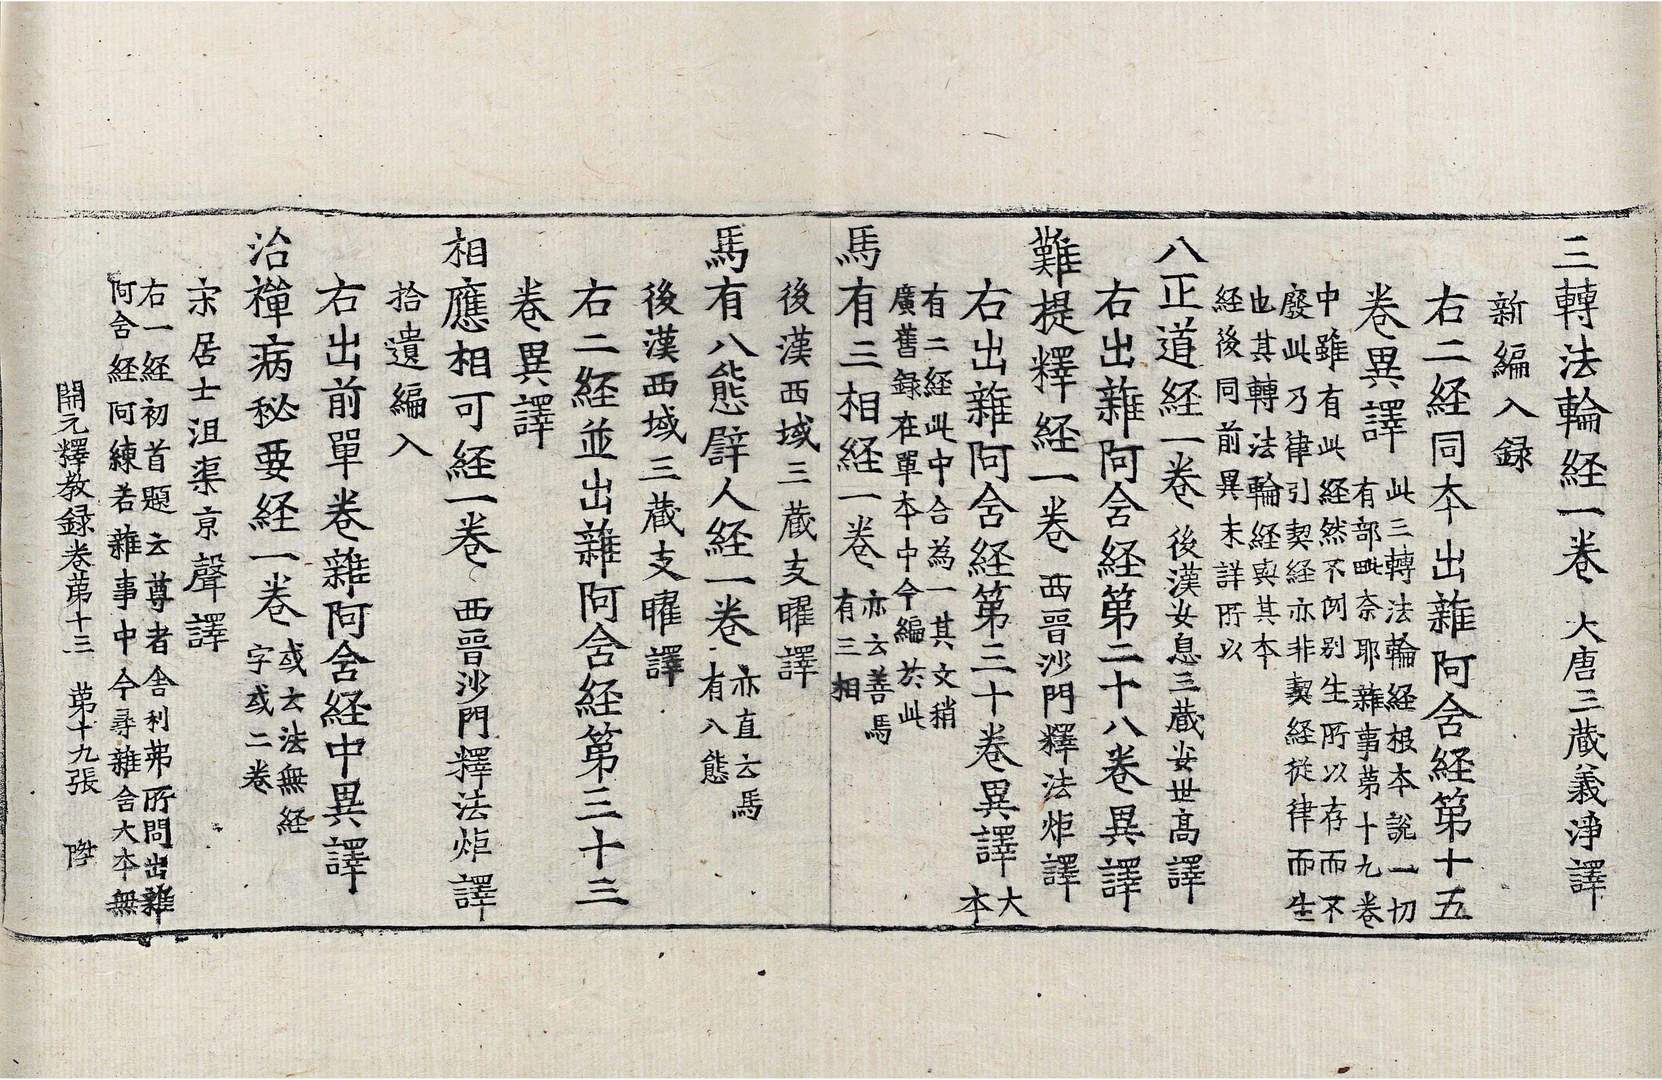 三轉法輪経一卷 大唐三蔵義淨譯
新編入録
右二経同本出雜阿含経第十五
卷異譯 此三轉法輪経根本說一切
有部毗奈耶雜事苐十九卷
中雖有此経然不例别生所以存而不
廢此乃律引契経亦非契経従律而生
也其轉法輪経與其本
経後同前異未詳所以
八正道経一卷 後漢安息三蔵安世髙譯
右出雜阿含経第二十八卷異譯
難提釋経一卷 西晉沙門釋法炬譯
右出雜阿含経第三十卷異譯 大
本
有二経此中合為一其文稍
廣舊録在單本中今編於此
馬有三相経一卷 亦云善馬
有三相
後漢西域三蔵支曜譯
馬有八態辟人経一卷 亦直云馬
有八態
後漢西域三蔵支曜譯
右二経並出雜阿含経第三十三
卷異譯
相應相可経一卷 西晉沙門釋法炬譯
拾遺編入
右出前單卷雜阿含経中異譯
治禪病秘要経一卷 或云法無経
字或二卷
宋居士沮渠京聲譯
右一経初首題云尊者舎利弗所問出雜
阿含経阿練若雜事中今尋雜含大本無
開元釋教録卷苐十三 苐十九張